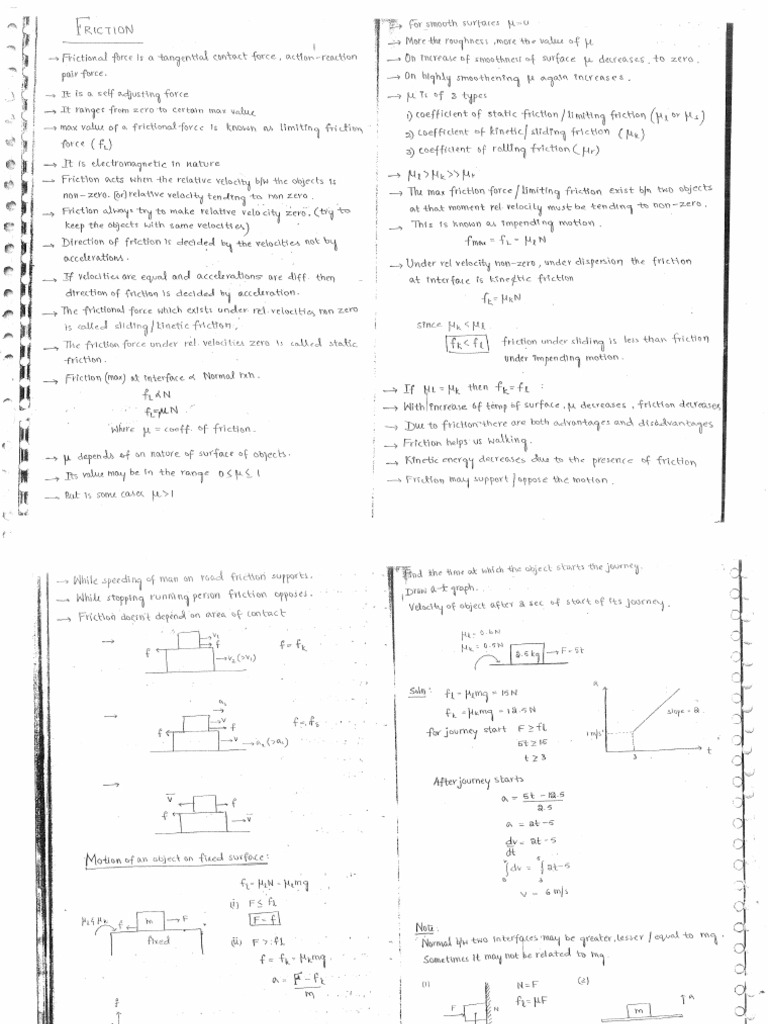 FRICTION
→ Frictional force is a tangential contact force, action-reaction
pair force.
→ It is a self adjusting force
→ It ranges from zero to certain max value
→ max value of a frictional force is known as limiting friction
force (fL)
→ It is electromagnetic in nature
→ Friction acts when the relative velocity b/w the objects is
non-zero. (or) relative velocity tending to non zero.
→ Friction always try to make relative velocity zero. (try to
keep the objects with same velocities)
→ Direction of friction is decided by the velocities not by
accelerations.
→ If velocities are equal and accelerations are diff. then
direction of friction is decided by acceleration.
→ The frictional force which exists under rel. velocities, non zero
is called sliding/kinetic friction.
→ The friction force under rel. velocities zero is called static
friction.
→ Friction (max) at interface α Normal rxn.
fL α N
fL = μN
Where μ = coeff. of friction.
→ μ depends of on nature of surface of objects.
→ Its value may be in the range 0 ≤ μ ≤ 1
→ But is some cases μ > 1
→ For smooth surfaces μ = 0
→ More the roughness, more the value of μ
→ On Increase of smoothness of surface μ decreases, to zero.
→ On highly smoothening μ again increases.
→ μ is of 3 types
1) coefficient of static friction / limiting friction (μl or μs)
2) coefficient of kinetic/sliding friction (μk)
3) coefficient of rolling friction (μr)
→ μl > μk >> μr
→ The max friction force / limiting friction exist b/n two objects
at that moment rel velocity must be tending to non-zero.
→ This is known as impending motion.
fmax = fL = μl N
→ Under rel velocity non-zero, under dispersion the friction
at interface is kinetic friction
fk = μk N
since μk < μl
fk < fl friction under sliding is less than friction
under impending motion.
→ If μl = μk then fk = fl :
→ With increase of temp of surface, μ decreases, friction decreases
→ Due to friction there are both advantages and disadvantages
→ Friction helps us walking.
→ Kinetic energy decreases due to the presence of friction
→ Friction may support / oppose the motion.
→ While speeding of man on road friction supports.
→ While stopping running person friction opposes.
→ Friction doesn't depend on area of contact
→ v1
f f
v2 (>v1)
f = fk
→ a1
v
f f
v
a2 (>a1)
f = fs
→ v f
f v
Motion of an object on fixed surface:
fl = μl N = μl mg
(i) F ≤ fl
F = f
(ii) F > fl
f = fk = μk mg
a = F - fk / m
μl, μk f m F
fixed
Find the time at which the object starts the journey.
Draw a-t graph.
Velocity of object after 3 sec of start of its journey.
μl = 0.6N
μk = 0.5N
2.5kg F = 5t
Soln: fl = μl mg = 15N
fk = μk mg = 12.5N
for journey start F ≥ fl
5t ≥ 15
t ≥ 3
a
slope = 2
1 m/s²
3 t
After journey starts
a = 5t - 12.5 / 2.5
a = 2t - 5
dv/dt = 2t - 5
∫dv = ∫2t - 5
v = 6 m/s
Note:
Normal b/w two interfaces may be greater, lesser / equal to mg.
Sometimes it may not be related to mg.
(1) N = F
fl = μF
F N
(2) m a